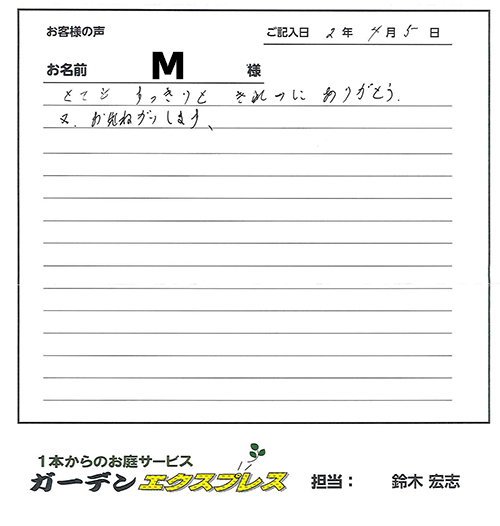 お客様の声 ご記入日 2年 4月 5日
お名前 M 様
とても すっきりと きれいに ありがとう.
又、お願ねがいします、
1本からのお庭サービス
ガーデンエクスプレス 担当： 鈴木 宏志